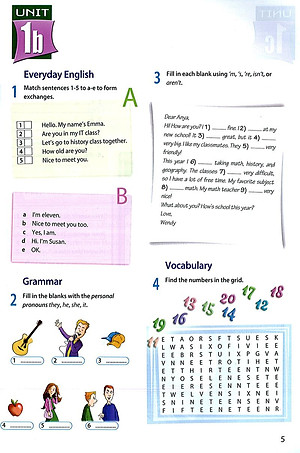 UNIT
1b
Everyday English
1 Match sentences 1-5 to a-e to form
exchanges.
A
1 Hello. My name's Emma.
2 Are you in my IT class?
3 Let's go to history class together.
4 How old are you?
5 Nice to meet you.
B
a I'm eleven.
b Nice to meet you too.
c Yes, I am.
d Hi. I'm Susan.
e OK.
Grammar
2 Fill in the blanks with the personal
pronouns they, he, she, it.
1
2
3
4
5
6
3 Fill in each blank using 'm, 's, 're, isn't, or
aren't.
Dear Anya,
Hi! How are you? I 1) ........ fine. I 2) ........ at my
new school. It 3) ........ great, but it 4) ........
very big. I like my classmates. They 5) ........ very
friendly!
This year I 6) ........ taking math, history, and
geography. The classes 7) ........ very difficult,
so I have a lot of free time. My favorite subject
8) ........ math. My math teacher 9) ........ very
nice!
What about you? How's school this year?
Love,
Wendy
Vocabulary
4 Find the numbers in the grid.
19 16 13 15 20 17 14 12 18
11
LWASIXOFIVIEE
ETTHIRTEENTNW
TWELVENSIXNEI
SNINETEENSENV
FIFTEENETEENR
5